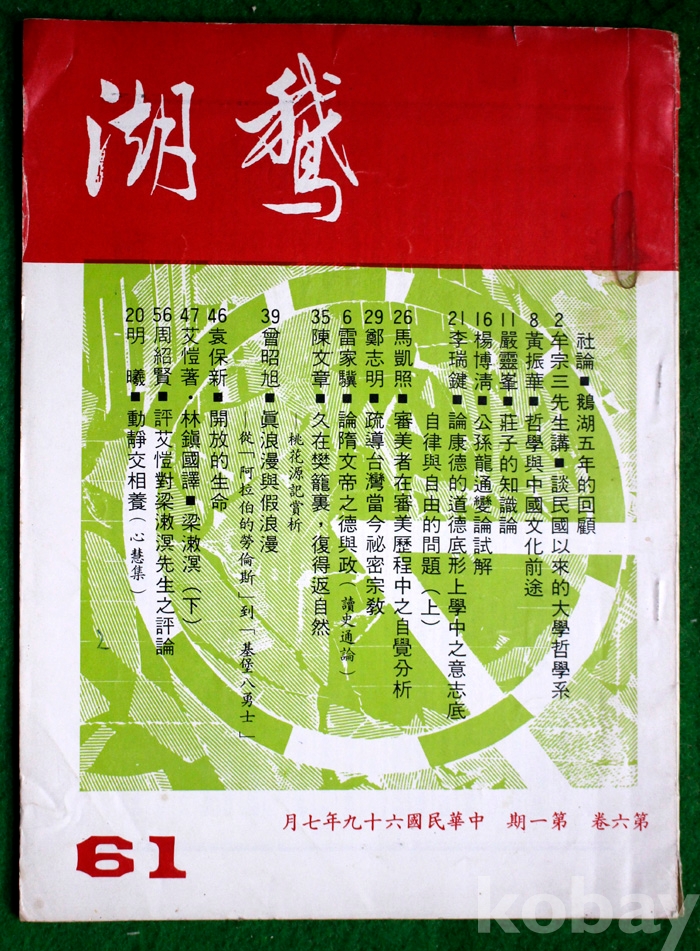 鵝湖
社論■鵝湖五年的回顧
2牟宗三先生講■談民國以來的大學哲學系
8黃振華■哲學與中國文化前途
11嚴靈峯■莊子的知識論
16楊博清■公孫龍通變論試解
21李瑞鍵■論康德的道德底形上學中之意志底
自律與自由的問題(上)
26馬凱照■審美者在審美歷程中之自覺分析
29鄭志明■疏導台灣當今祕密宗教
6雷家驥■論隋文帝之德與政(讀史通論)
35陳文章■久在樊籠裏,復得返自然
—桃花源記賞析
39曾昭旭■眞浪漫與假浪漫
—從「阿拉伯的勞倫斯」到「基堡八勇士」
46袁保新■開放的生命
47艾愷著・林鎮國譯■梁漱溟(下)
56周紹賢■評艾愷對梁漱溟先生之評論
20明 曦■動靜交相養(心慧集)
2
第六卷 第一期 中華民國六十九年七月
61
kobay